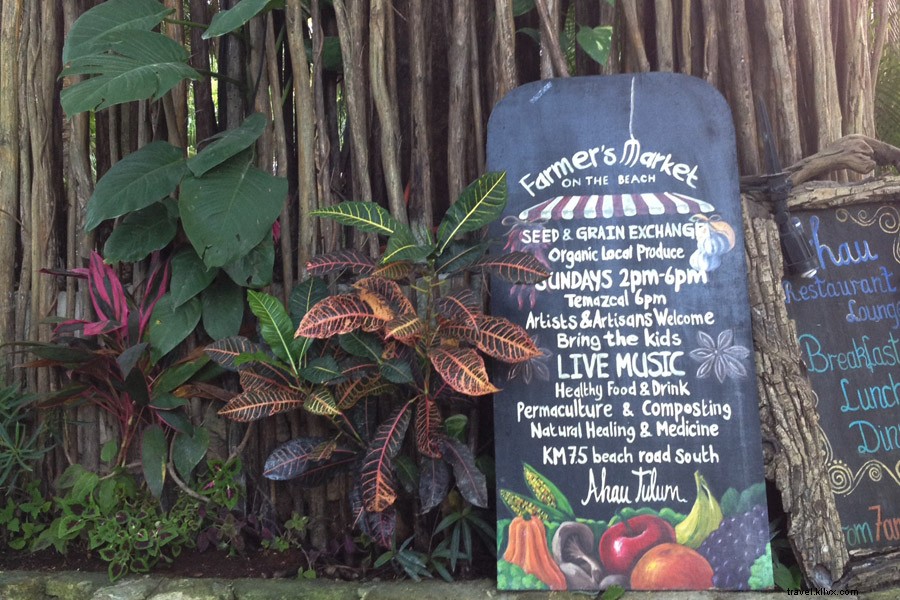 Farmer's Market
ON THE BEACH
SEED & GRAIN EXCHANGE
Organic Local Produce
SUNDAYS 2pm-6pm
Temazcal 6pm
Artists & Artisans Welcome
Bring the kids
LIVE MUSIC
Healthy Food & Drink
Permaculture & Composting
Natural Healing & Medicine
KM7.5 beach road South
Ahau Tulum
hau
Restaurant
Lounge
Breakfast
Lunch
Din
From 7am
travel.kllvx.com